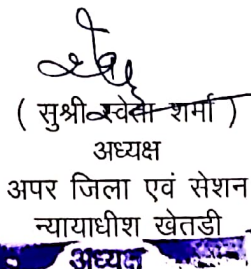 ( सुश्री स्वेता शर्मा )
अध्यक्ष
अपर जिला एवं सेशन
न्यायाधीश खेतडी
अध्यक्ष